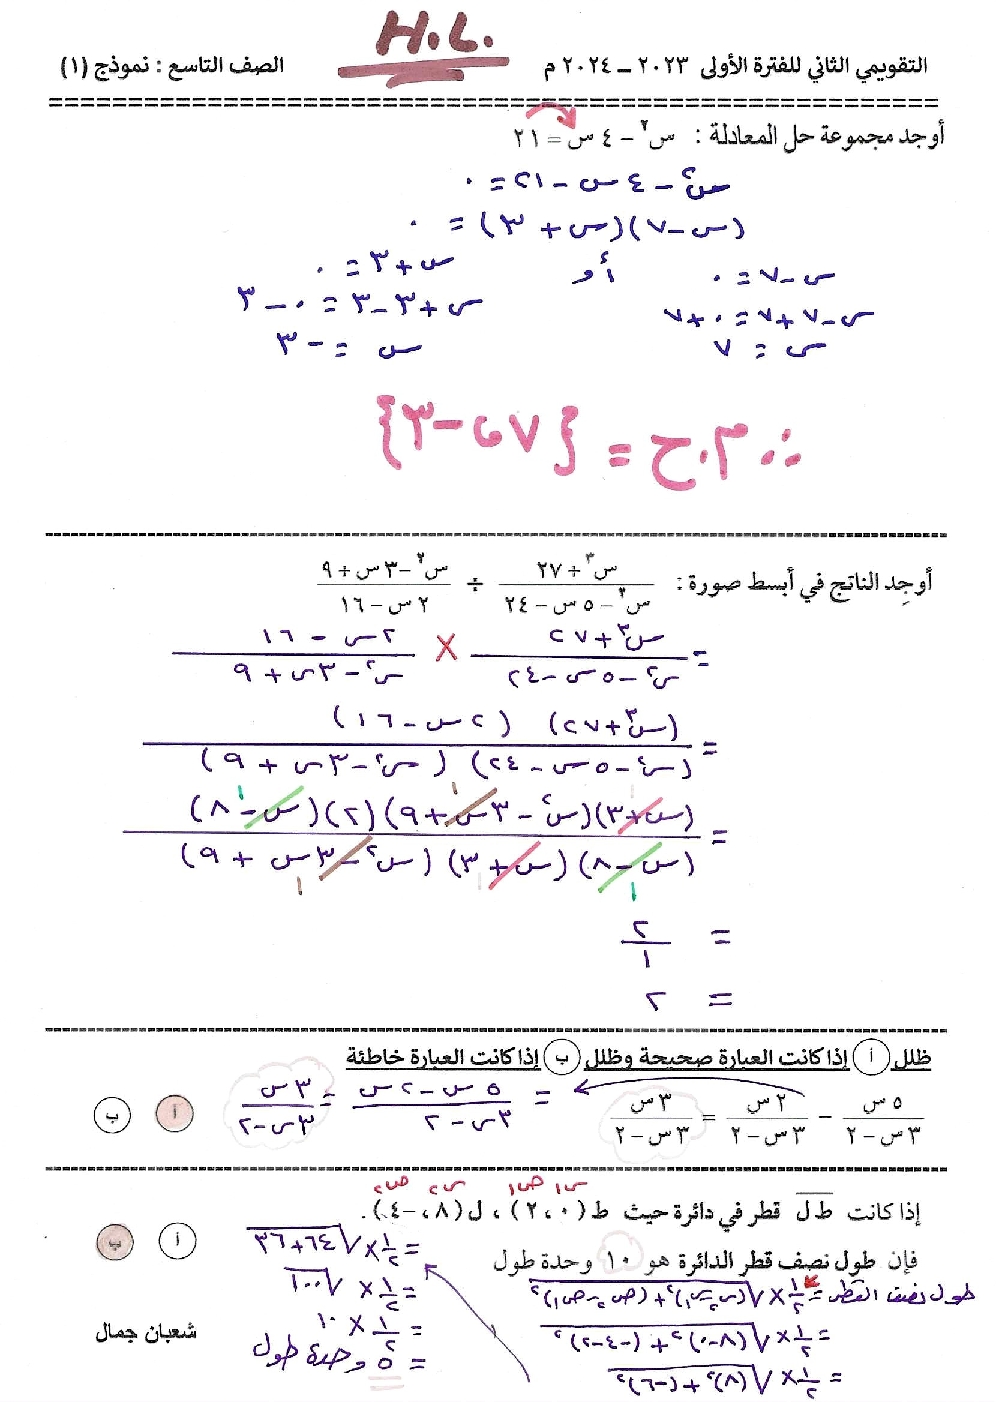 H.L.
التقويمي الثاني للفترة الأولى ٢٠٢٣ – ٢٠٢٤ م الصف التاسع : نموذج (١)
أوجد مجموعة حل المعادلة : س٢ – ٤ س = ٢١
س٢ – ٤ س – ٢١ = ٠
(س – ٧)(س + ٣) = ٠
س – ٧ = ٠ أو س + ٣ = ٠
س – ٧ + ٧ = ٠ + ٧ س + ٣ – ٣ = ٠ – ٣
س = ٧ س = – ٣
∴ م.ح = {٧ ، –٣}
أوجِد الناتج في أبسط صورة : (س٣ + ٢٧)/(س٢ – ٥ س – ٢٤) ÷ (س٢ – ٣ س + ٩)/(٢ س – ١٦)
= (س٣ + ٢٧)/(س٢ – ٥ س – ٢٤) × (٢ س – ١٦)/(س٢ – ٣ س + ٩)
= (س٣ + ٢٧) (٢ س – ١٦)/(س٢ – ٥ س – ٢٤) (س٢ – ٣ س + ٩)
= (س + ٣)(س٢ – ٣ س + ٩)(٢)(س – ٨)/(س – ٨)(س + ٣)(س٢ – ٣ س + ٩)
= ٢/١
= ٢
ظلل أ إذا كانت العبارة صحيحة وظلل ب إذا كانت العبارة خاطئة
٥ س/(٣ س – ٢) – ٢ س/(٣ س – ٢) = ٣ س/(٣ س – ٢) = (٥ س – ٢ س)/(٣ س – ٢) = ٣ س/(٣ س – ٢) أ ب
س١ ص١ س٢ ص٢
إذا كانت ط ل قطر في دائرة حيث ط (٠ ، ٢) ، ل (٨ ، –٤) . أ ب
فإن طول نصف قطر الدائرة هو ١٠ وحدة طول
طول نصف القطر = ١/٢ × √(س٢ – س١)٢ + (ص٢ – ص١)٢
= ١/٢ × √(٨ – ٠)٢ + (–٤ – ٢)٢
= ١/٢ × √(٨)٢ + (–٦)٢
= ١/٢ × √٦٤ + ٣٦
= ١/٢ × √١٠٠
= ١/٢ × ١٠
= ٥ وحدة طول
شعبان جمال